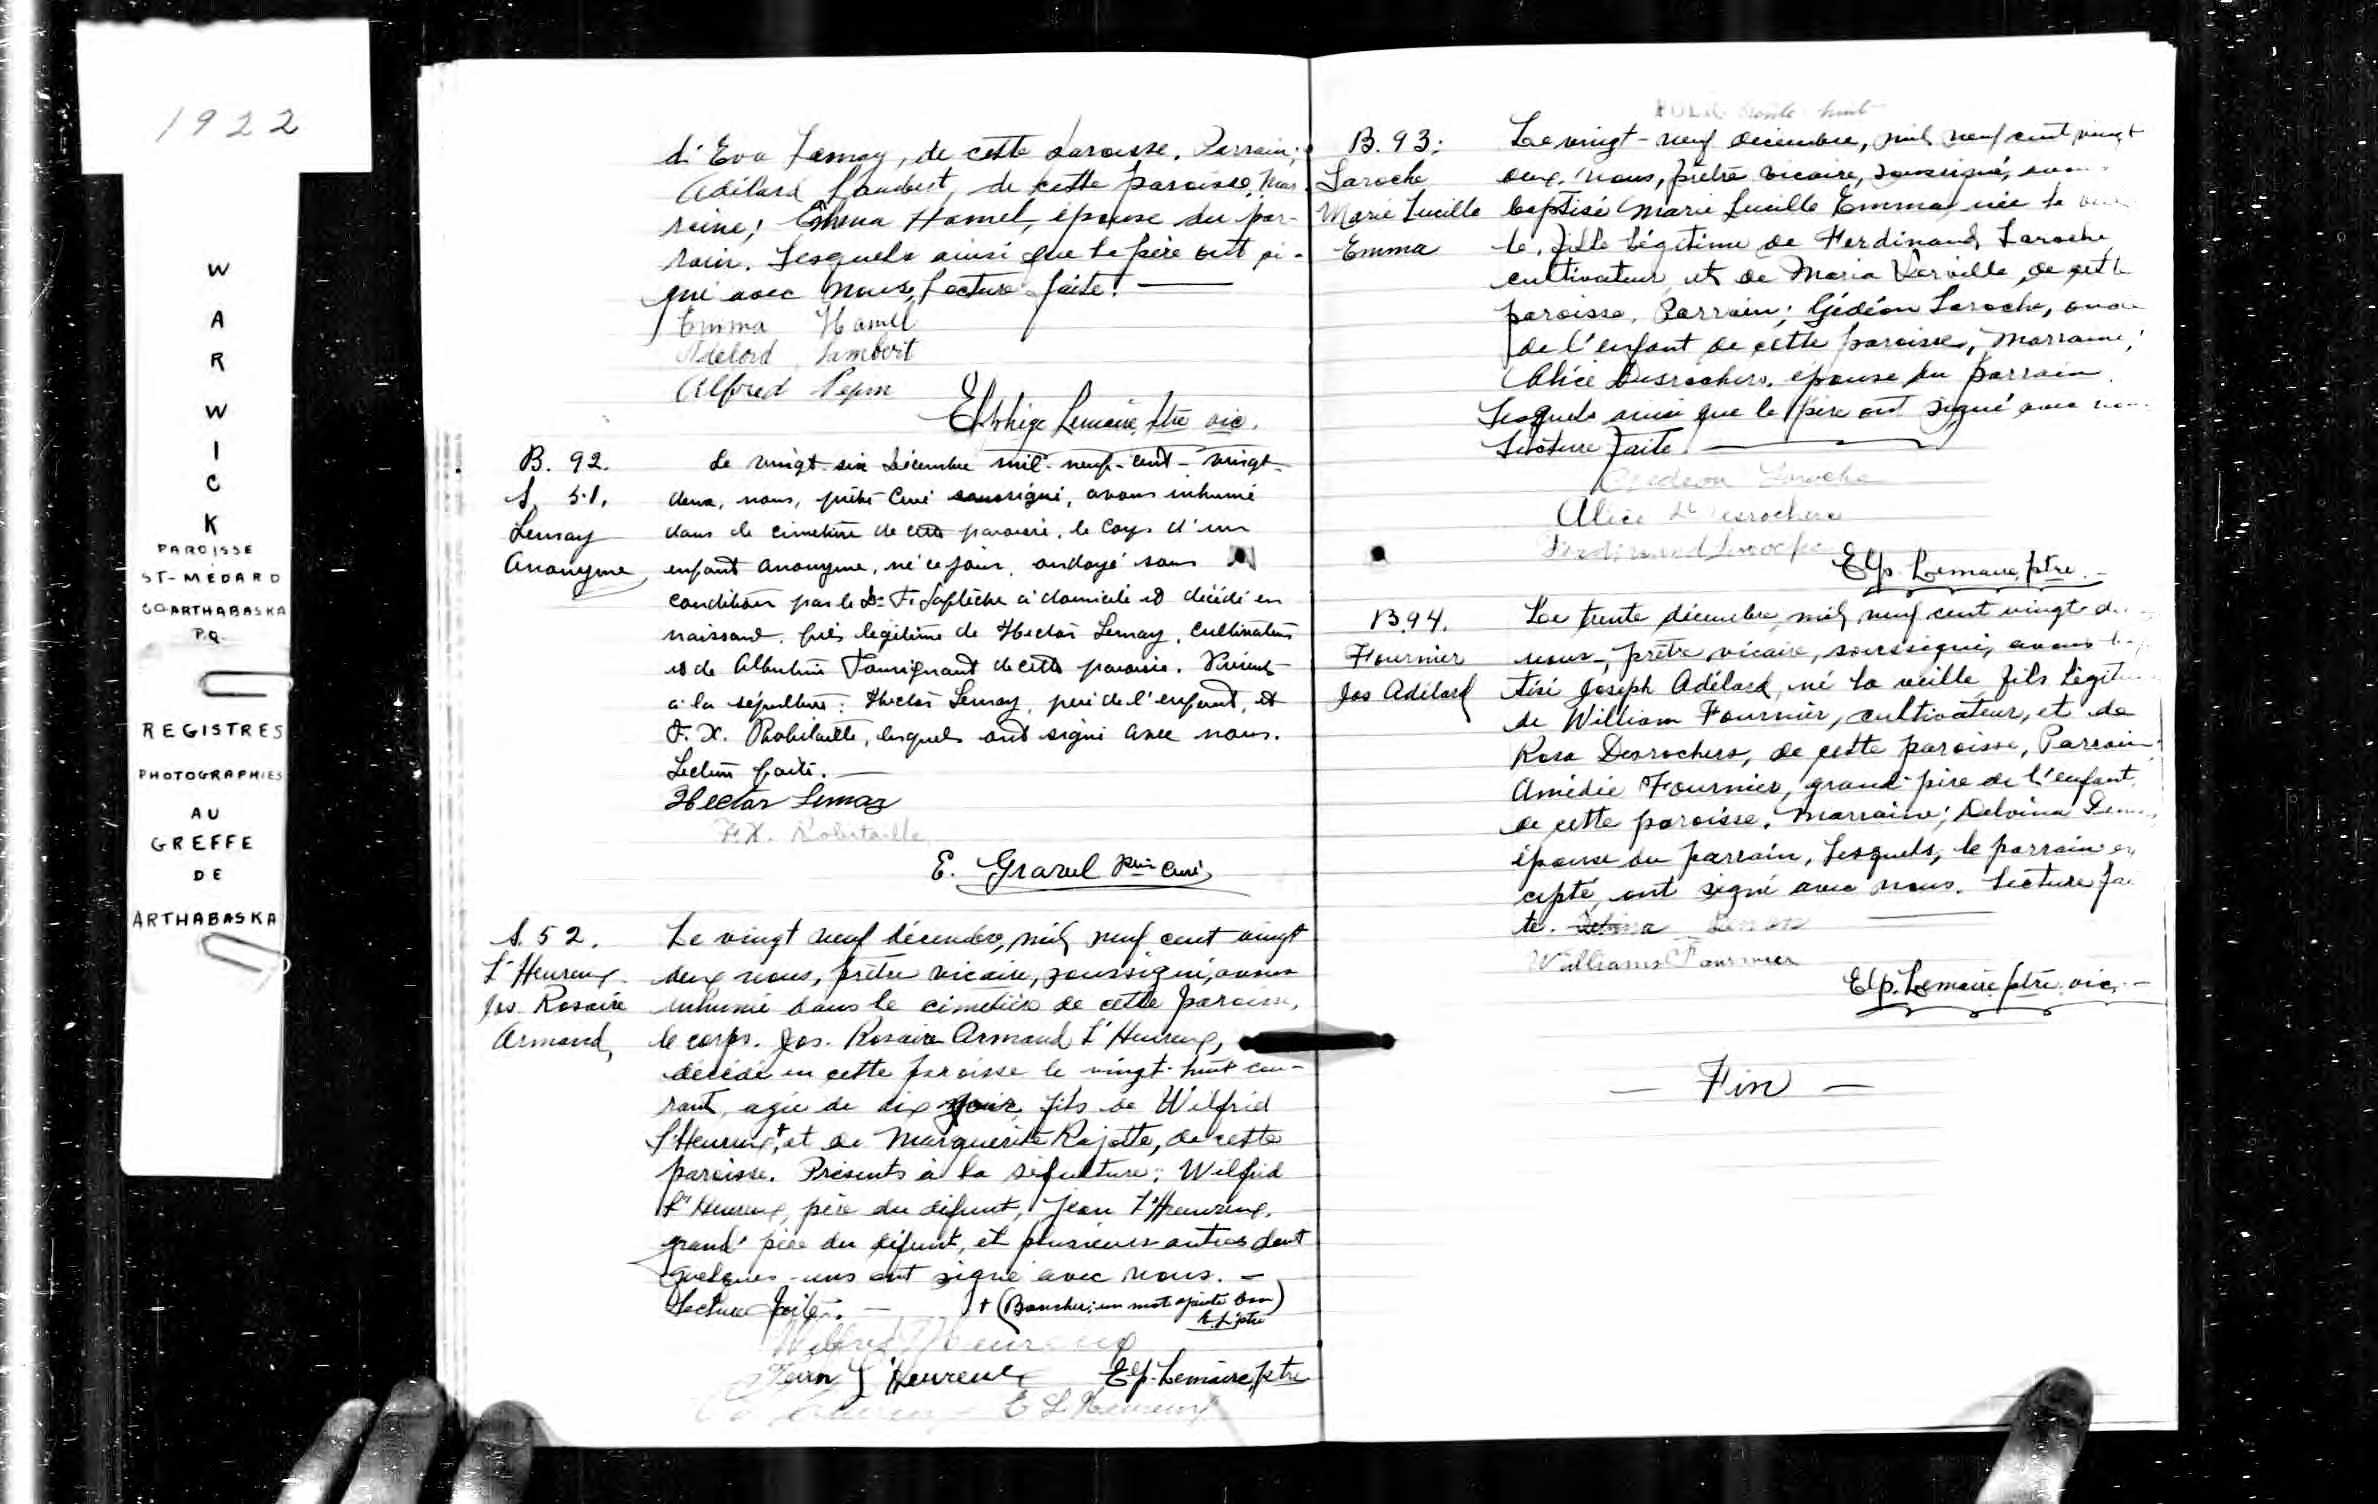 1922
W
A
R
W
I
C
K
PAROISSE
ST-MÉDARD
CO ARTHABASKA
P.Q.
REGISTRES
PHOTOGRAPHIES
AU
GREFFE
DE
ARTHABASKA
d'Eva Lemay, de cette paroisse. Parrain;
Adélard Lambert, de cette paroisse, Mar-
raine; Emma Hamel, épouse du par-
rain. Lesquels ainsi que le père ont si-
gné avec nous, Lecture faite.
Emma Hamel
Adelard Lambert
Alfred Pepin
Elphège Lemaire, ptre vic.
B. 92.
S. 51.
Lemay
Anonyme
Le vingt-six Décembre mil-neuf-cent-vingt-
deux, nous, prêtre Curé soussigné, avons inhumé
dans le cimetière de cette paroisse, le corps d'un
enfant anonyme, né ce jour, ondoyé sous
condition par le Dr F. Laflèche à domicile et décédé en
naissant, fils légitime de Hector Lemay, Cultivateur
et de Albertine Tourignant de cette paroisse. Présents
à la sépulture: Hector Lemay, père de l'enfant, et
F. X. Robitaille, lesquels ont signé avec nous.
Lecture faite.
Hector Lemay
F.X. Robitaille
E. Gravel Ptre Curé
S. 52.
L'Heureux
Jos. Rosaire
Armand,
Le vingt neuf décembre, mil neuf cent vingt
deux nous, prêtre vicaire, soussigné, avons
inhumé dans le cimetière de cette paroisse,
le corps. Jos. Rosaire Armand L'Heureux,
décédé en cette paroisse le vingt-huit cou-
rant, agé de dix jours, fils de Wilfrid
L'Heureux,+ et de Marguerite Rajotte, de cette
paroisse. Présents à la sépulture: Wilfrid
L'Heureux, père du défunt, Jean L'Heureux,
grand'père du défunt, et plusieurs autres dont
quelques-uns ont signé avec nous.
Lecture faite. + (Boucher; un mot ajouté bon)
E. L. ptre
Wilfrid L'Heureux
Jean L'Heureux Elp. Lemaire, ptre
E L'Heureux
B. 93:
Laroche
Marie Lucille
Emma
Le vingt-neuf décembre, mil neuf cent vingt
deux. nous, prêtre vicaire, soussigné, avons
baptisé Marie Lucille Emma, née la veil
le, fille légitime de Ferdinand Laroche
cultivateur, et de Maria Verville, de cette
paroisse. Parrain; Gédéon Laroche, oncle
de l'enfant de cette paroisse, Marraine;
Alice Desrochers, épouse du parrain.
Lesquels ainsi que le père ont signé avec nous
Lecture faite.
Gedeon Laroche
Alice Desrochers
Ferdinand Laroche
Elp. Lemaire, ptre.
B 94.
Fournier
Jos Adélard
Le trente décembre, mil neuf cent vingt-d
nous, prêtre vicaire, soussigné, avons bap
tisé Joseph Adélard, né la veille, fils légiti
de William Fournier, cultivateur, et de
Rosa Desrochers, de cette paroisse, Parrain:
Amédée Fournier, grand-père de l'enfant,
de cette paroisse. Marraine; Delvina
épouse du parrain, Lesquels, le parrain ex
cepté, ont signé avec nous. Lecture fai
te.
Williams Fournier
Elp. Lemaire ptre. vic.
— Fin —